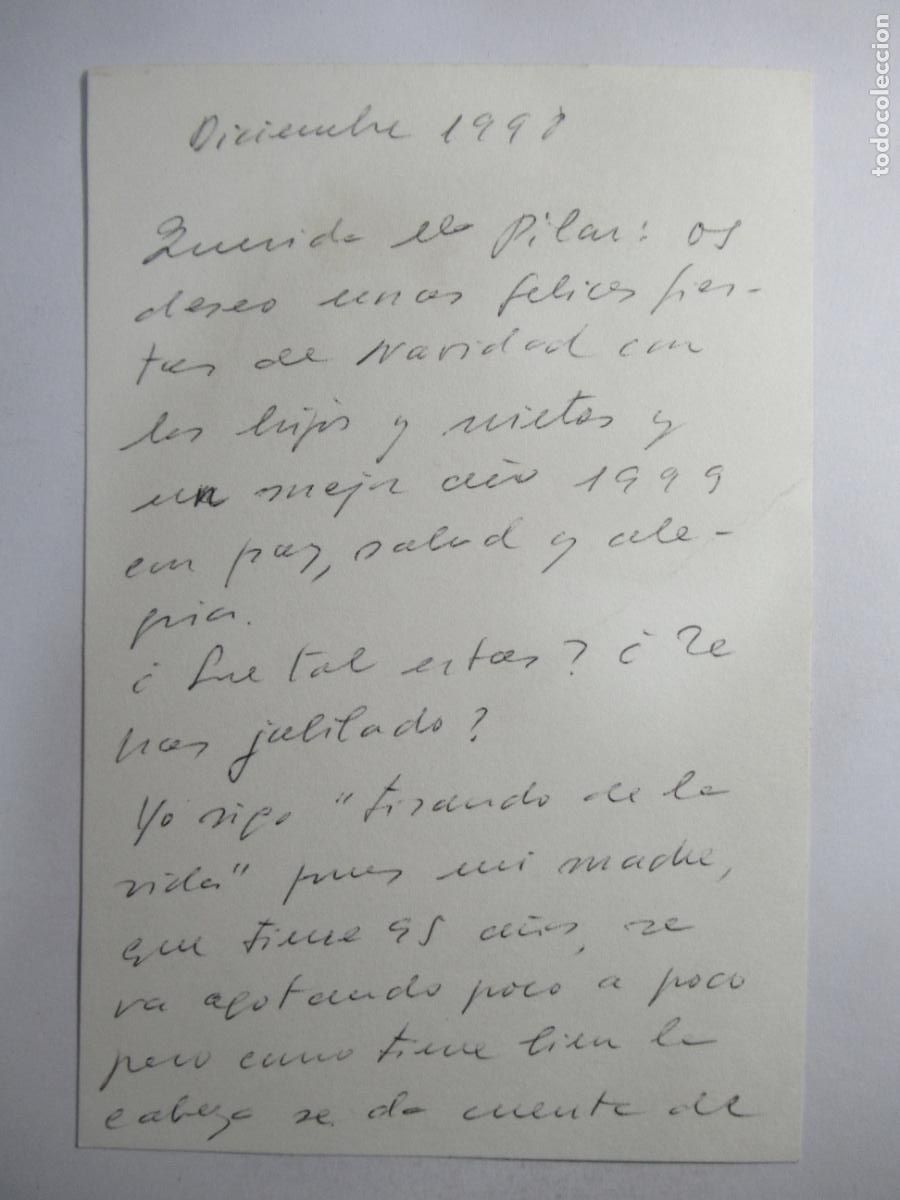 Diciembre 1998
Querida Mª Pilar: os
deseo unas felices fies-
tas de Navidad con
los hijos y nietos y
un mejor año 1999
con paz, salud y ale-
gria.
¿Que tal estas? ¿Te
has jubilado?
Yo sigo "tirando de la
vida" pues mi madre,
que tiene 95 años, se
va agotando poco a poco
pero como tiene bien la
cabeza se da cuenta de
todocoleccion